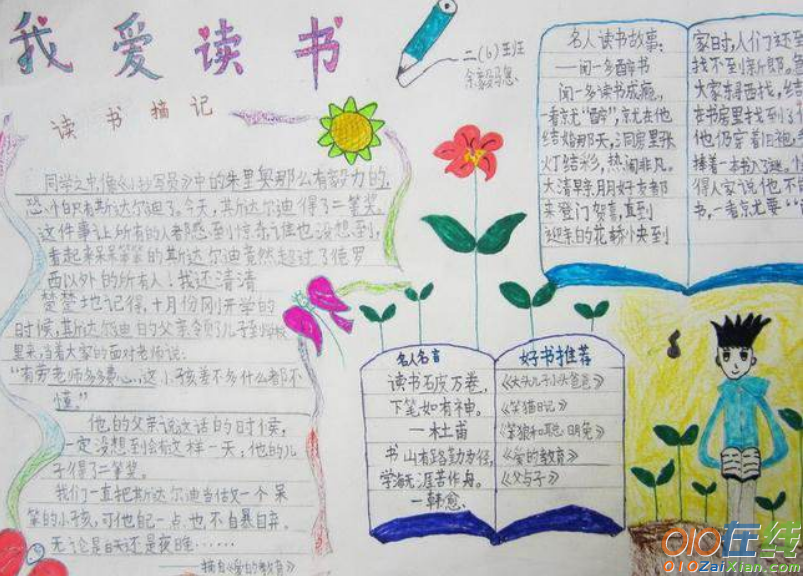 我爱读书
二(6)班
读书摘记
同学之中,像《小抄写员》中的朱里奥那么有毅力的,
恐怕只有斯达尔迪了。今天,斯达尔迪得了二等奖。
这件事让所有的人都感到惊奇,谁也没想到,
看起来呆呆笨笨的斯达尔迪竟然超过了德罗
西以外的所有人!我还清清
楚楚地记得,十月份刚开学的
时候,斯达尔迪的父亲领了儿子到学校
里来,当着大家的面对老师说:
"有劳老师多多费心,这小孩差不多什么都不
懂。"
他的父亲说这话的时候,
一定没想到会有这样一天:他的儿
子得了二等奖。
我们一直把斯达尔迪当做一个呆
笨的小孩,可他自己一点也不自暴自弃。
无论是白天还是夜晚……
——摘自《爱的教育》
名人读书故事:
——闻一多醉书
闻一多读书成瘾,
一看就"醉",就在他
结婚那天,洞房里张
灯结彩,热闹非凡。
大清早亲朋好友都
来登门贺喜,直到
迎亲的花轿快到
家时,人们才还到
找不到新郎。
大家东寻西找,结
在书房里找到了
他仍穿着旧袍,
捧着一本书入了迷。
得人家说他不
书,一看就要"
名人名言
读书破万卷,
下笔如有神。
一杜甫
书山有路勤为径,
学海无涯苦作舟。
一韩愈
好书推荐
《大头儿子小头爸爸》
《笑猫日记》
《笨狼和聪明兔》
《爱的教育》
《父与子》
010在线
010ZaiXian.com